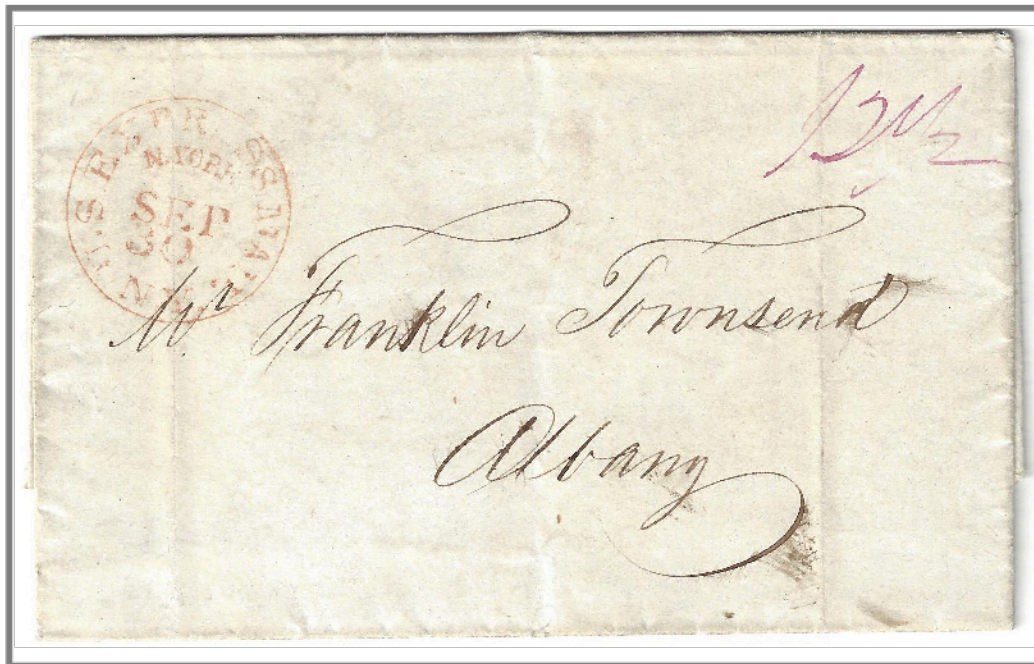 U.S. EXPRESS MAIL
N. YORK
SEP
30
N.Y.
12 1/2
Mr Franklin Townsend
Albany